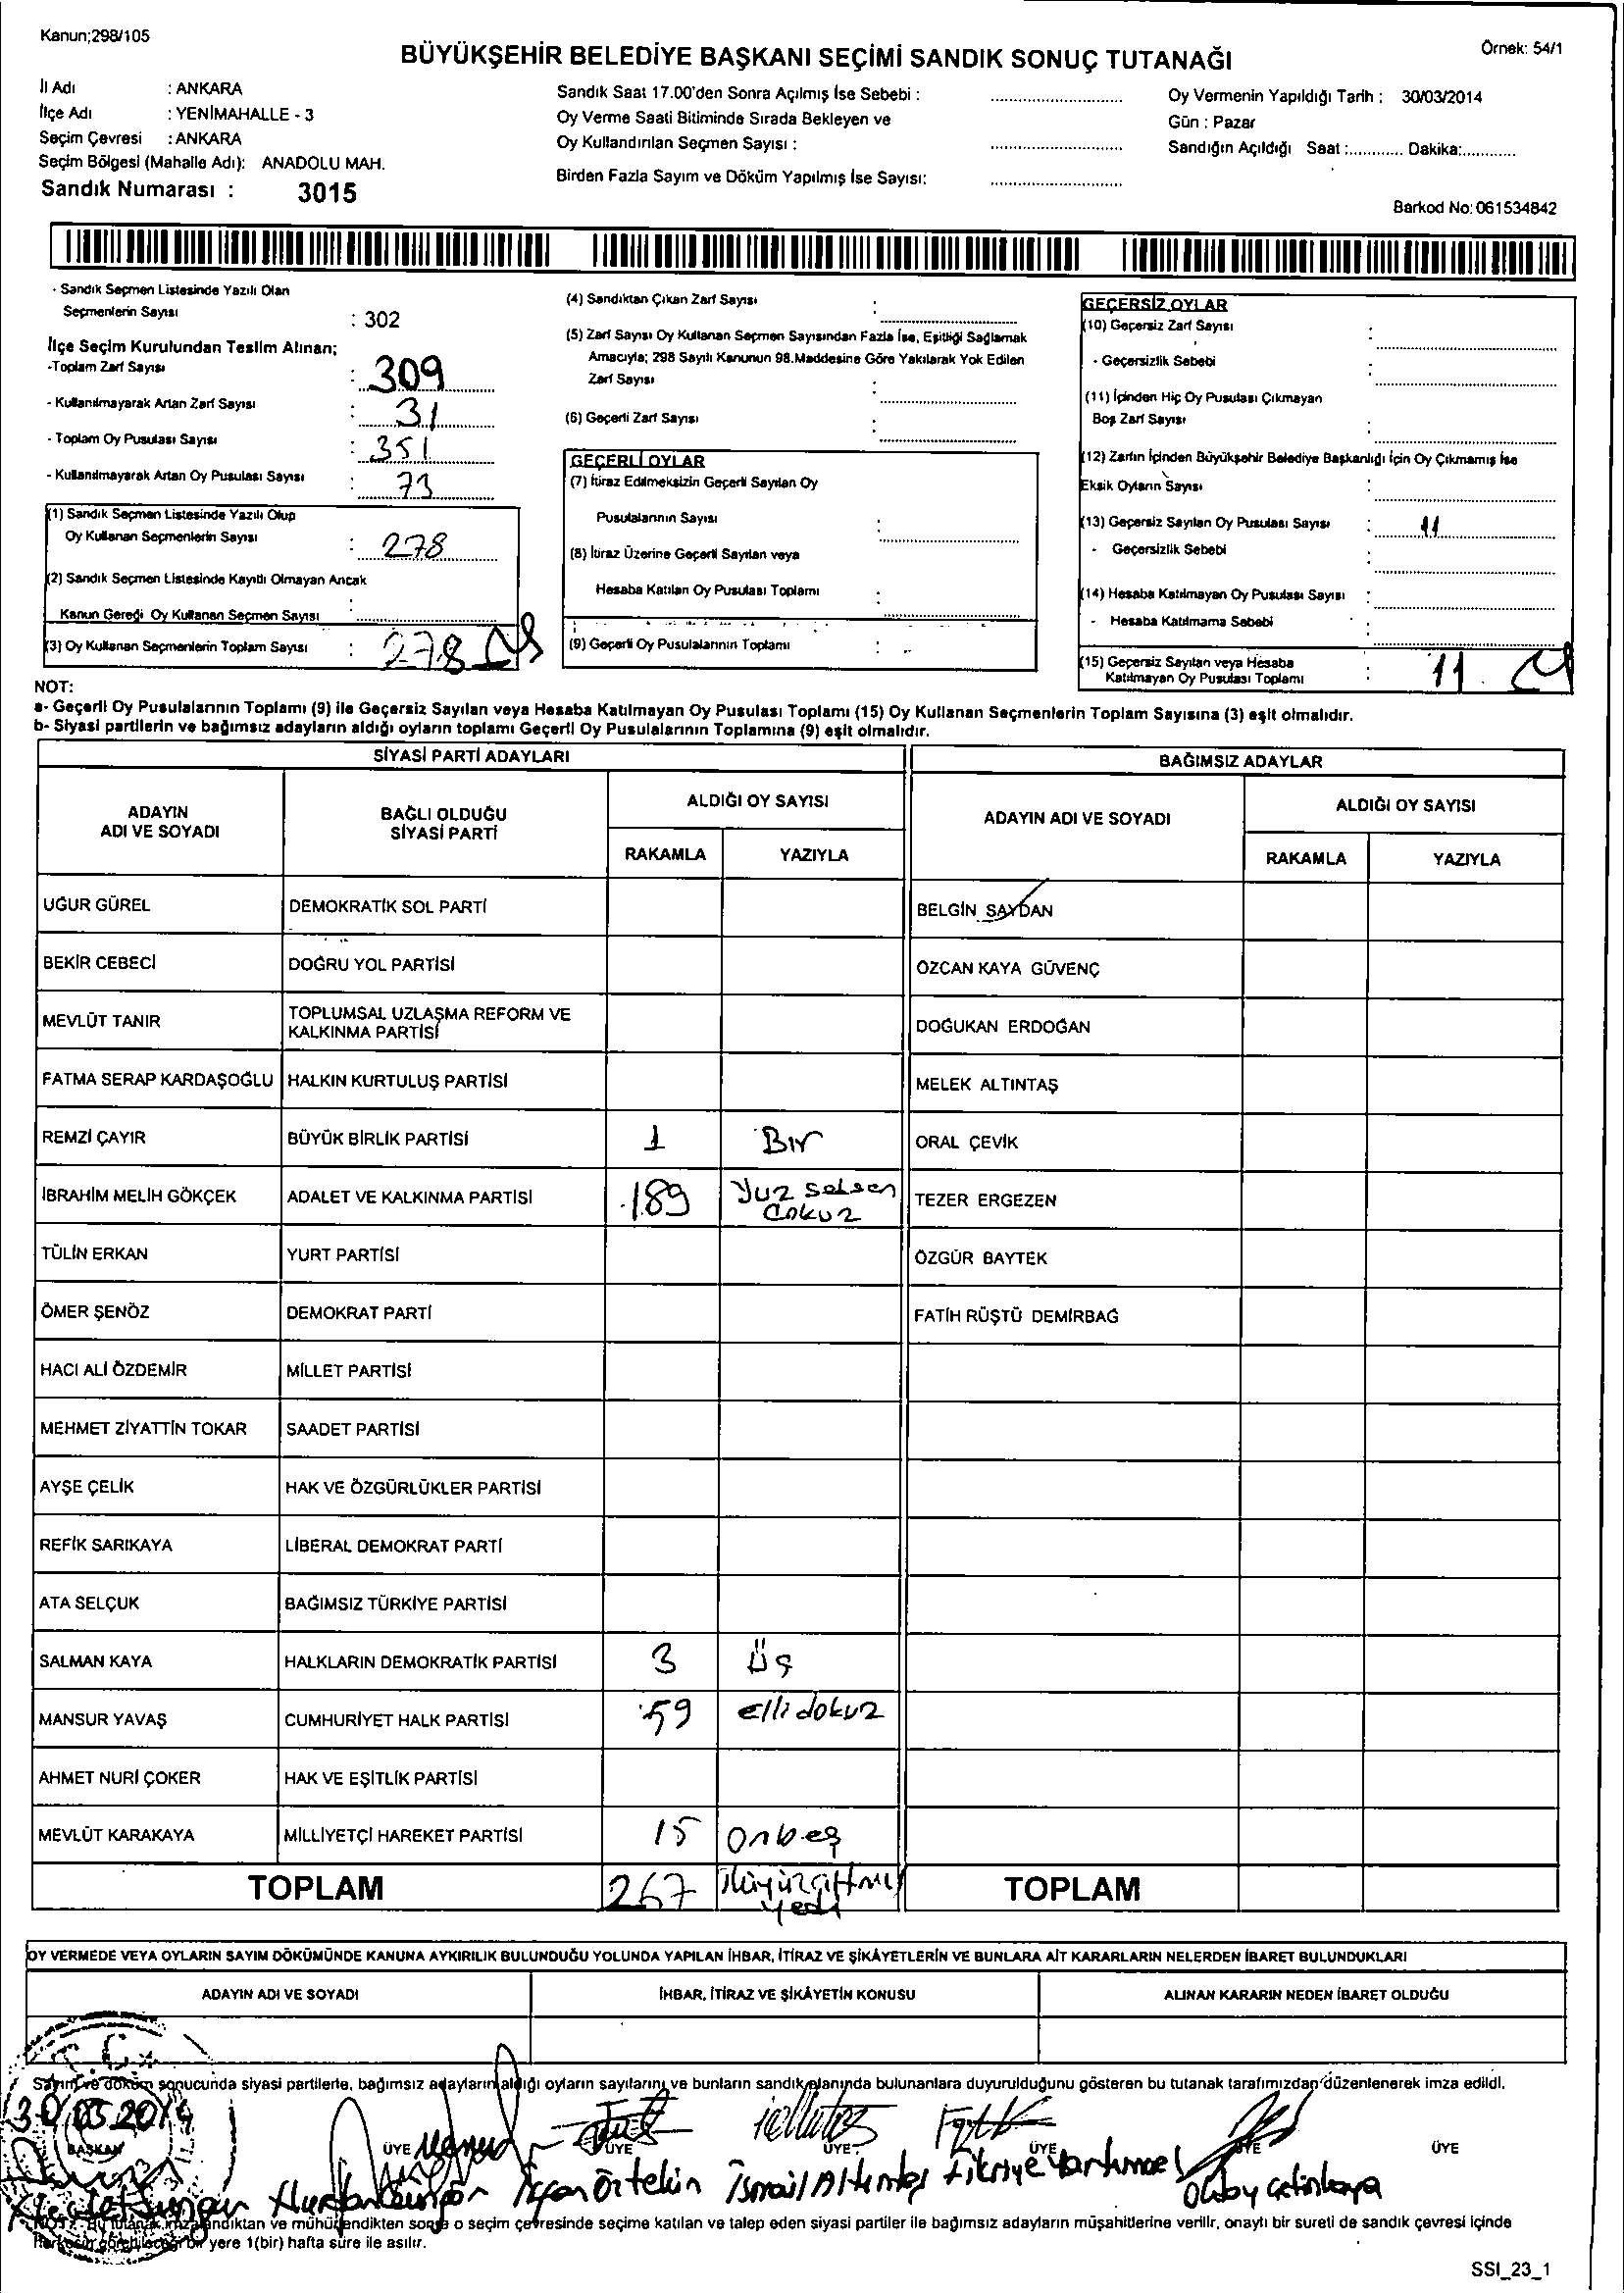 Kanun;298/105
Örnek: 54/1
BÜYÜKŞEHİR BELEDİYE BAŞKANI SEÇİMİ SANDIK SONUÇ TUTANAĞI
İl Adı : ANKARA
İlçe Adı : YENİMAHALLE - 3
Seçim Çevresi : ANKARA
Seçim Bölgesi (Mahalle Adı): ANADOLU MAH.
Sandık Numarası : 3015
Sandık Saat 17.00'den Sonra Açılmış İse Sebebi :
Oy Verme Saati Bitiminde Sırada Bekleyen ve
Oy Kullandırılan Seçmen Sayısı :
Birden Fazla Sayım ve Döküm Yapılmış İse Sayısı:
Oy Vermenin Yapıldığı Tarih : 30/03/2014
Gün : Pazar
Sandığın Açıldığı Saat :............ Dakika:............
Barkod No: 061534842
- Sandık Seçmen Listesinde Yazılı Olan
Seçmenlerin Sayısı : 302
İlçe Seçim Kurulundan Teslim Alınan;
-Toplam Zarf Sayısı : 309
- Kullanılmayarak Artan Zarf Sayısı : 31
- Toplam Oy Pusulası Sayısı : 351
- Kullanılmayarak Artan Oy Pusulası Sayısı : 73
(1) Sandık Seçmen Listesinde Yazılı Olup
Oy Kullanan Seçmenlerin Sayısı : 278
(2) Sandık Seçmen Listesinde Kayıtlı Olmayan Ancak
Kanun Gereği Oy Kullanan Seçmen Sayısı :
(3) Oy Kullanan Seçmenlerin Toplam Sayısı : 278
(4) Sandıktan Çıkan Zarf Sayısı :
(5) Zarf Sayısı Oy Kullanan Seçmen Sayısından Fazla İse, Eşitliği Sağlamak
Amacıyla; 298 Sayılı Kanunun 98.Maddesine Göre Yakılarak Yok Edilen
Zarf Sayısı :
(6) Geçerli Zarf Sayısı :
GEÇERLİ OYLAR
(7) İtiraz Edilmeksizin Geçerli Sayılan Oy
Pusulalarının Sayısı :
(8) İtiraz Üzerine Geçerli Sayılan veya
Hesaba Katılan Oy Pusulası Toplamı :
(9) Geçerli Oy Pusulalarının Toplamı :
GEÇERSİZ OYLAR
(10) Geçersiz Zarf Sayısı :
- Geçersizlik Sebebi :
(11) İçinden Hiç Oy Pusulası Çıkmayan
Boş Zarf Sayısı :
(12) Zarfın İçinden Büyükşehir Belediye Başkanlığı İçin Oy Çıkmamış İse
Eksik Oyların Sayısı :
(13) Geçersiz Sayılan Oy Pusulası Sayısı : 11
- Geçersizlik Sebebi :
(14) Hesaba Katılmayan Oy Pusulası Sayısı :
- Hesaba Katılmama Sebebi :
(15) Geçersiz Sayılan veya Hesaba
Katılmayan Oy Pusulası Toplamı : 11
NOT:
a- Geçerli Oy Pusulalarının Toplamı (9) ile Geçersiz Sayılan veya Hesaba Katılmayan Oy Pusulası Toplamı (15) Oy Kullanan Seçmenlerin Toplam Sayısına (3) eşit olmalıdır.
b- Siyasi partilerin ve bağımsız adayların aldığı oyların toplamı Geçerli Oy Pusulalarının Toplamına (9) eşit olmalıdır.
SİYASİ PARTİ ADAYLARI
BAĞIMSIZ ADAYLAR
ADAYIN ADI VE SOYADI
BAĞLI OLDUĞU SİYASİ PARTİ
ALDIĞI OY SAYISI
RAKAMLA YAZIYLA
ADAYIN ADI VE SOYADI
ALDIĞI OY SAYISI
RAKAMLA YAZIYLA
UĞUR GÜREL DEMOKRATİK SOL PARTİ BELGİN SAYDAN
BEKİR CEBECİ DOĞRU YOL PARTİSİ ÖZCAN KAYA GÜVENÇ
MEVLÜT TANIR TOPLUMSAL UZLAŞMA REFORM VE KALKINMA PARTİSİ DOĞUKAN ERDOĞAN
FATMA SERAP KARDAŞOĞLU HALKIN KURTULUŞ PARTİSİ MELEK ALTINTAŞ
REMZİ ÇAYIR BÜYÜK BİRLİK PARTİSİ 1 Bır ORAL ÇEVİK
İBRAHİM MELİH GÖKÇEK ADALET VE KALKINMA PARTİSİ 189 Yuz seksen Dokuz TEZER ERGEZEN
TÜLİN ERKAN YURT PARTİSİ ÖZGÜR BAYTEK
ÖMER ŞENÖZ DEMOKRAT PARTİ FATİH RÜŞTÜ DEMİRBAĞ
HACI ALİ ÖZDEMİR MİLLET PARTİSİ
MEHMET ZİYATTİN TOKAR SAADET PARTİSİ
AYŞE ÇELİK HAK VE ÖZGÜRLÜKLER PARTİSİ
REFİK SARIKAYA LİBERAL DEMOKRAT PARTİ
ATA SELÇUK BAĞIMSIZ TÜRKİYE PARTİSİ
SALMAN KAYA HALKLARIN DEMOKRATİK PARTİSİ 3 Üş
MANSUR YAVAŞ CUMHURİYET HALK PARTİSİ 59 elli dokuz
AHMET NURİ ÇOKER HAK VE EŞİTLİK PARTİSİ
MEVLÜT KARAKAYA MİLLİYETÇİ HAREKET PARTİSİ 15 onbeş
TOPLAM 267 ikiyüzaltmış yedi TOPLAM
OY VERMEDE VEYA OYLARIN SAYIM DÖKÜMÜNDE KANUNA AYKIRILIK BULUNDUĞU YOLUNDA YAPILAN İHBAR, İTİRAZ VE ŞİKÂYETLERİN VE BUNLARA AİT KARARLARIN NELERDEN İBARET BULUNDUKLARI
ADAYIN ADI VE SOYADI İHBAR, İTİRAZ VE ŞİKÂYETİN KONUSU ALINAN KARARIN NEDEN İBARET OLDUĞU
Sayım ve döküm sonucunda siyasi partilerle, bağımsız adayların aldığı oyların sayılarını ve bunların sandık alanında bulunanlara duyurulduğunu gösteren bu tutanak tarafımızdan düzenlenerek imza edildi.
T.C.
30/03.2014
BAŞKAN ÜYE ÜYE ÜYE ÜYE ÜYE ÜYE
İsmail Altıntaş Fikriye
NOT: Bu tutanak imzalandıktan ve mühürlendikten sonra o seçim çevresinde seçime katılan ve talep eden siyasi partiler ile bağımsız adayların müşahitlerine verilir, onaylı bir sureti de sandık çevresi içinde
herkesin görebileceği bir yere 1(bir) hafta süre ile asılır.
SSI_23_1